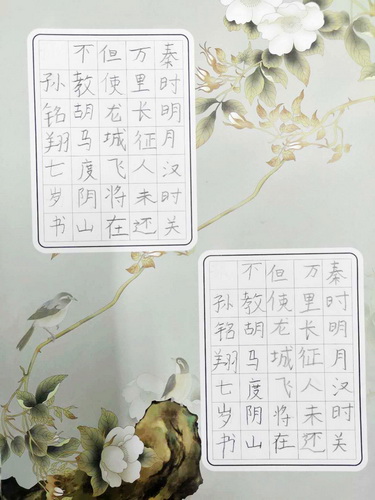 秦时明月汉时关
万里长征人未还
但使龙城飞将在
不教胡马度阴山
孙铭翔七岁书
秦时明月汉时关
万里长征人未还
但使龙城飞将在
不教胡马度阴山
孙铭翔七岁书